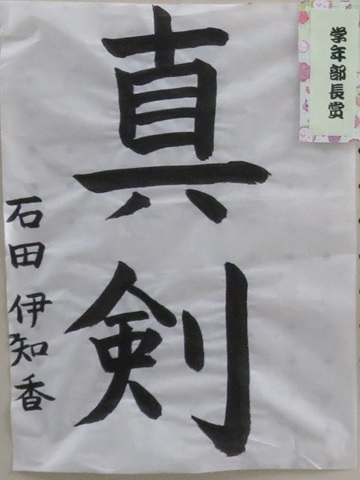 学年部長賞
真剣
石田伊知香